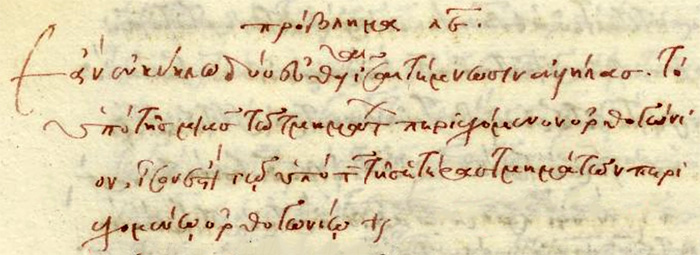 πρόβλημα λς´.
Ἐὰν ἐν κύκλω δύο εὐθεῖαι τέμνωσιν ἀλλήλας. τὸ
ὑπὸ τῆς μιᾶς τῶν τμημάτ περιεχόμενον ὀρθογώνι
ον, ἴσον ἐστὶ τῷ ὑπὸ τῆς ἑτέρας τμημάτων περι
εχομένῳ ὀρθογωνίῳ